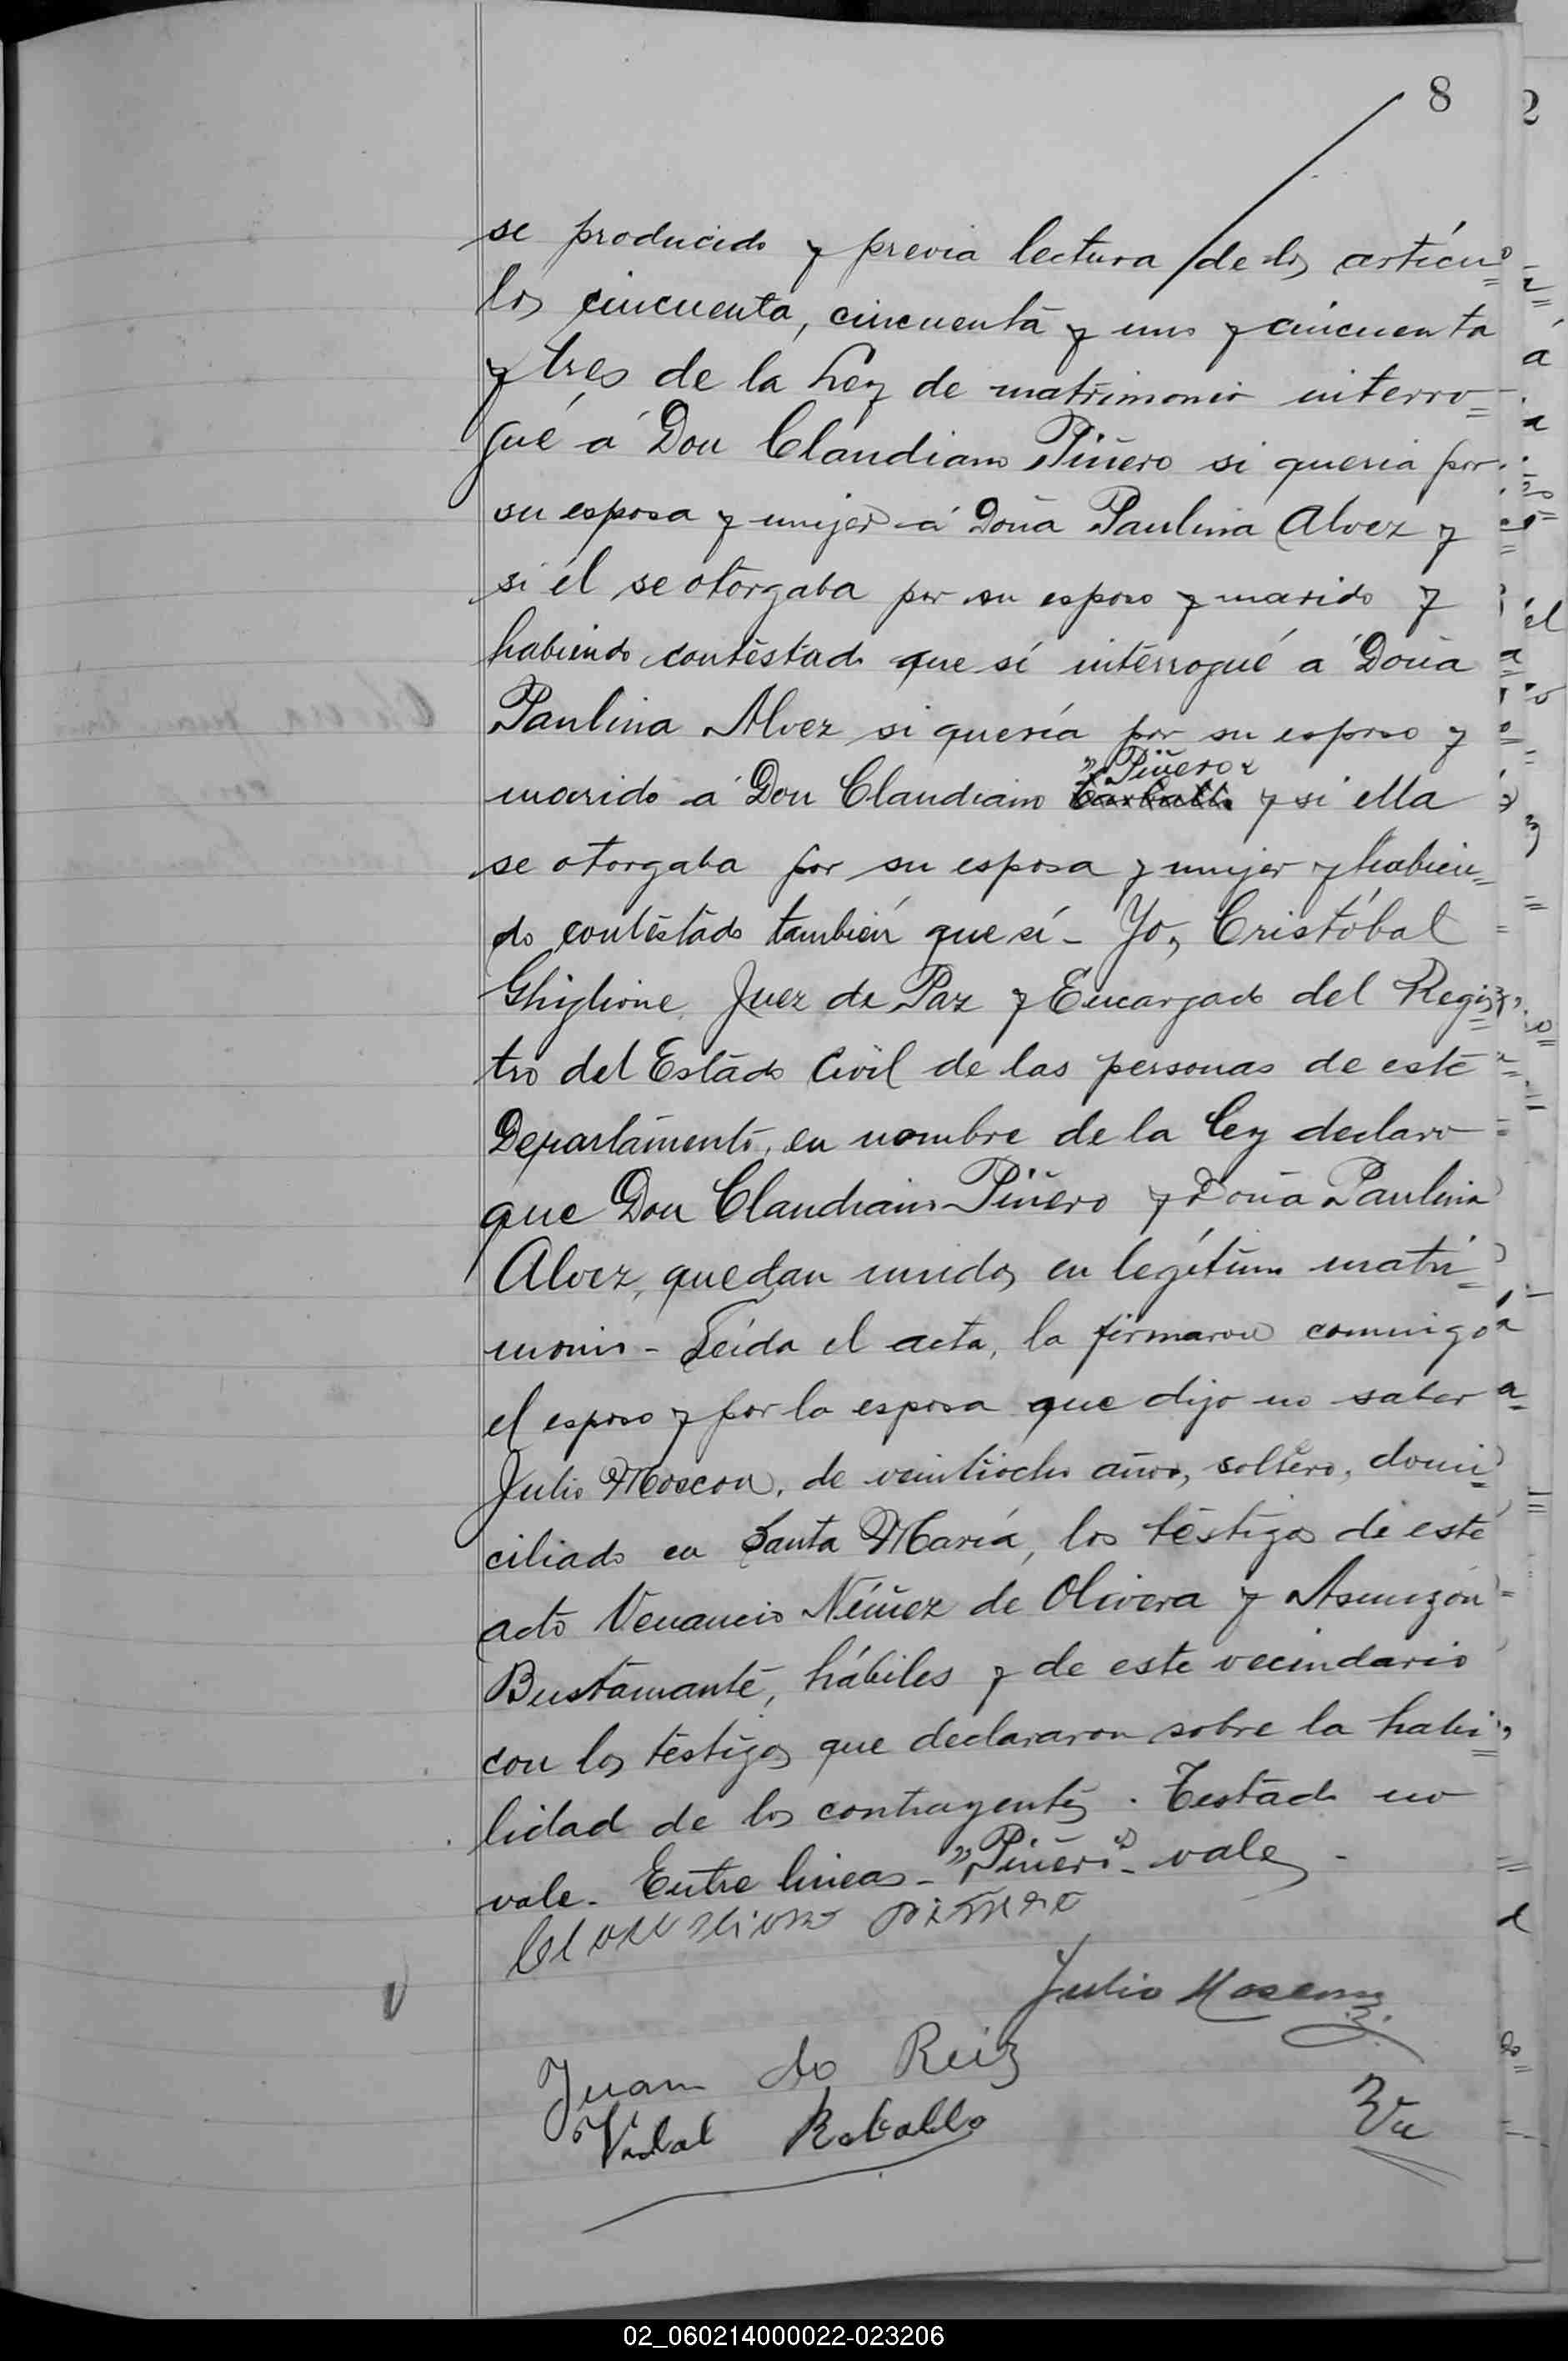 8
se producido y previa lectura de los artícu=
los cincuenta, cincuenta y uno y cincuenta
y tres de la Ley de matrimonio interro=
gué á Don Claudiano Piñero si queria por
su esposa y mujer á Doña Paulina Alvez y
si él se otorgaba por su esposo y marido y
habiendo contestado que sí interrogué á Doña
Paulina Alvez si quería por su esposo y
"Piñero"
marido á Don Claudiano Carballo y si ella
se otorgaba por su esposa y mujer y habien=
do contestado también que sí - Yo, Cristóbal
Ghiglione, Juez de Paz y Encargado del Regis=
tro del Estado Civil de las personas de este
Departamento, en nombre de la Ley declaro
que Don Claudiano Piñero y Doña Paulina
Alvez, quedan unidos en legítimo matri=
monio - Leída el acta, la firmaron conmigo
el esposo y por la esposa que dijo no saber
Julio Moscou, de veintiocho años, soltero, domi=
ciliado en Santa María, los testigos de este
acto Venancio Núñez de Olivera y Asunzón
Bustamante, hábiles y de este vecindario
con los testigos que declararon sobre la habi=
lidad de los contrayentes. Testado no
vale. Entre lineas - "Piñero" - vale -
Julio
Juan do Reiz
Vidal Raballo
02_060214000022-023206